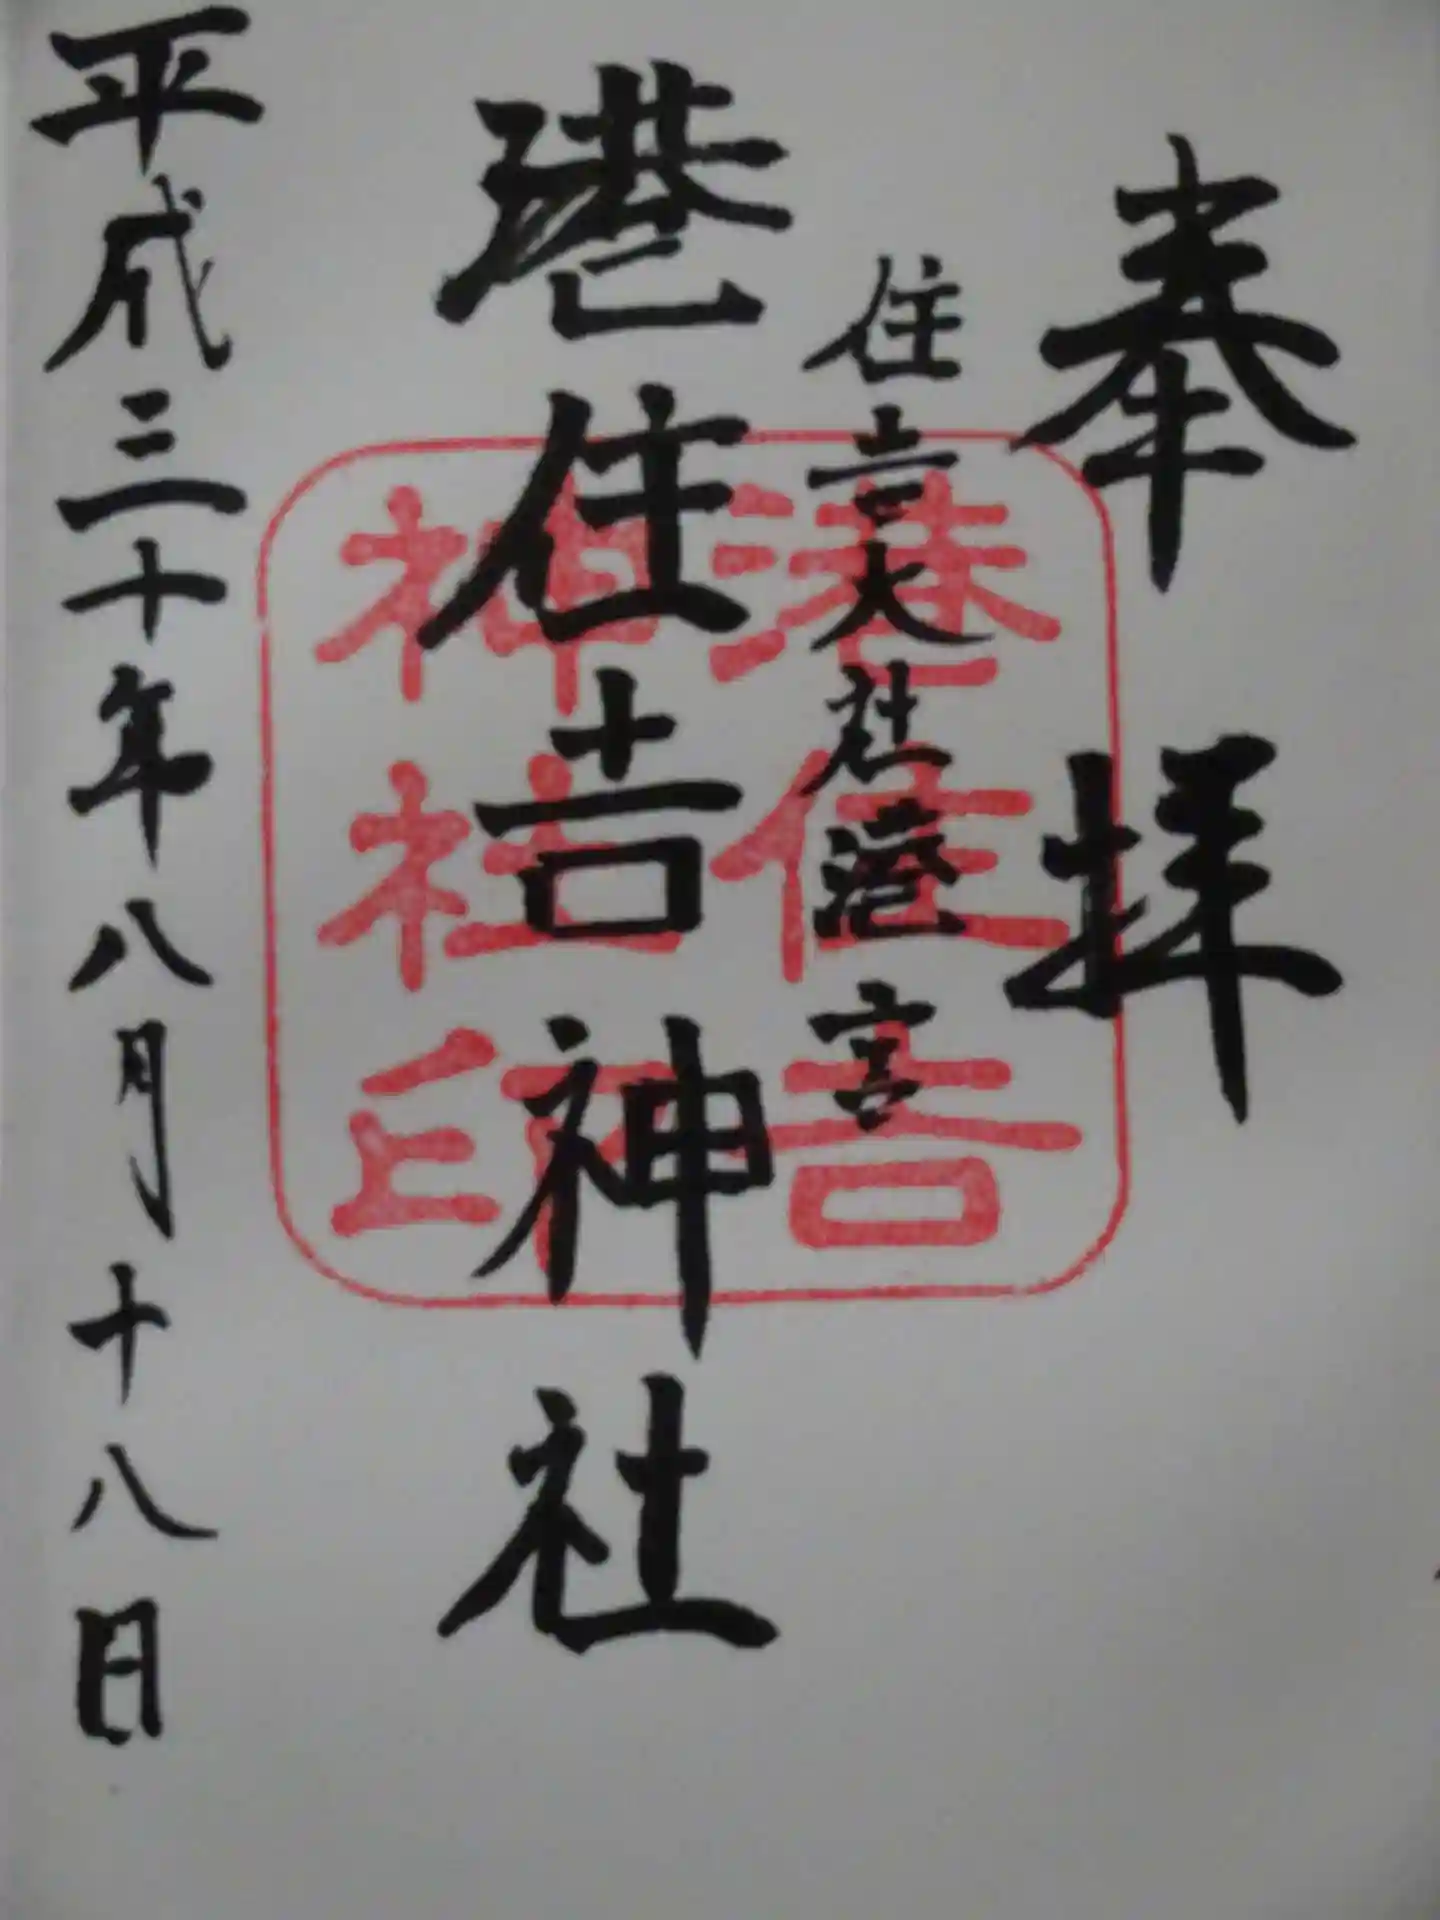 奉拝
住吉大社港宮
港住吉神社
平成三十年八月十八日
港住吉
神社印